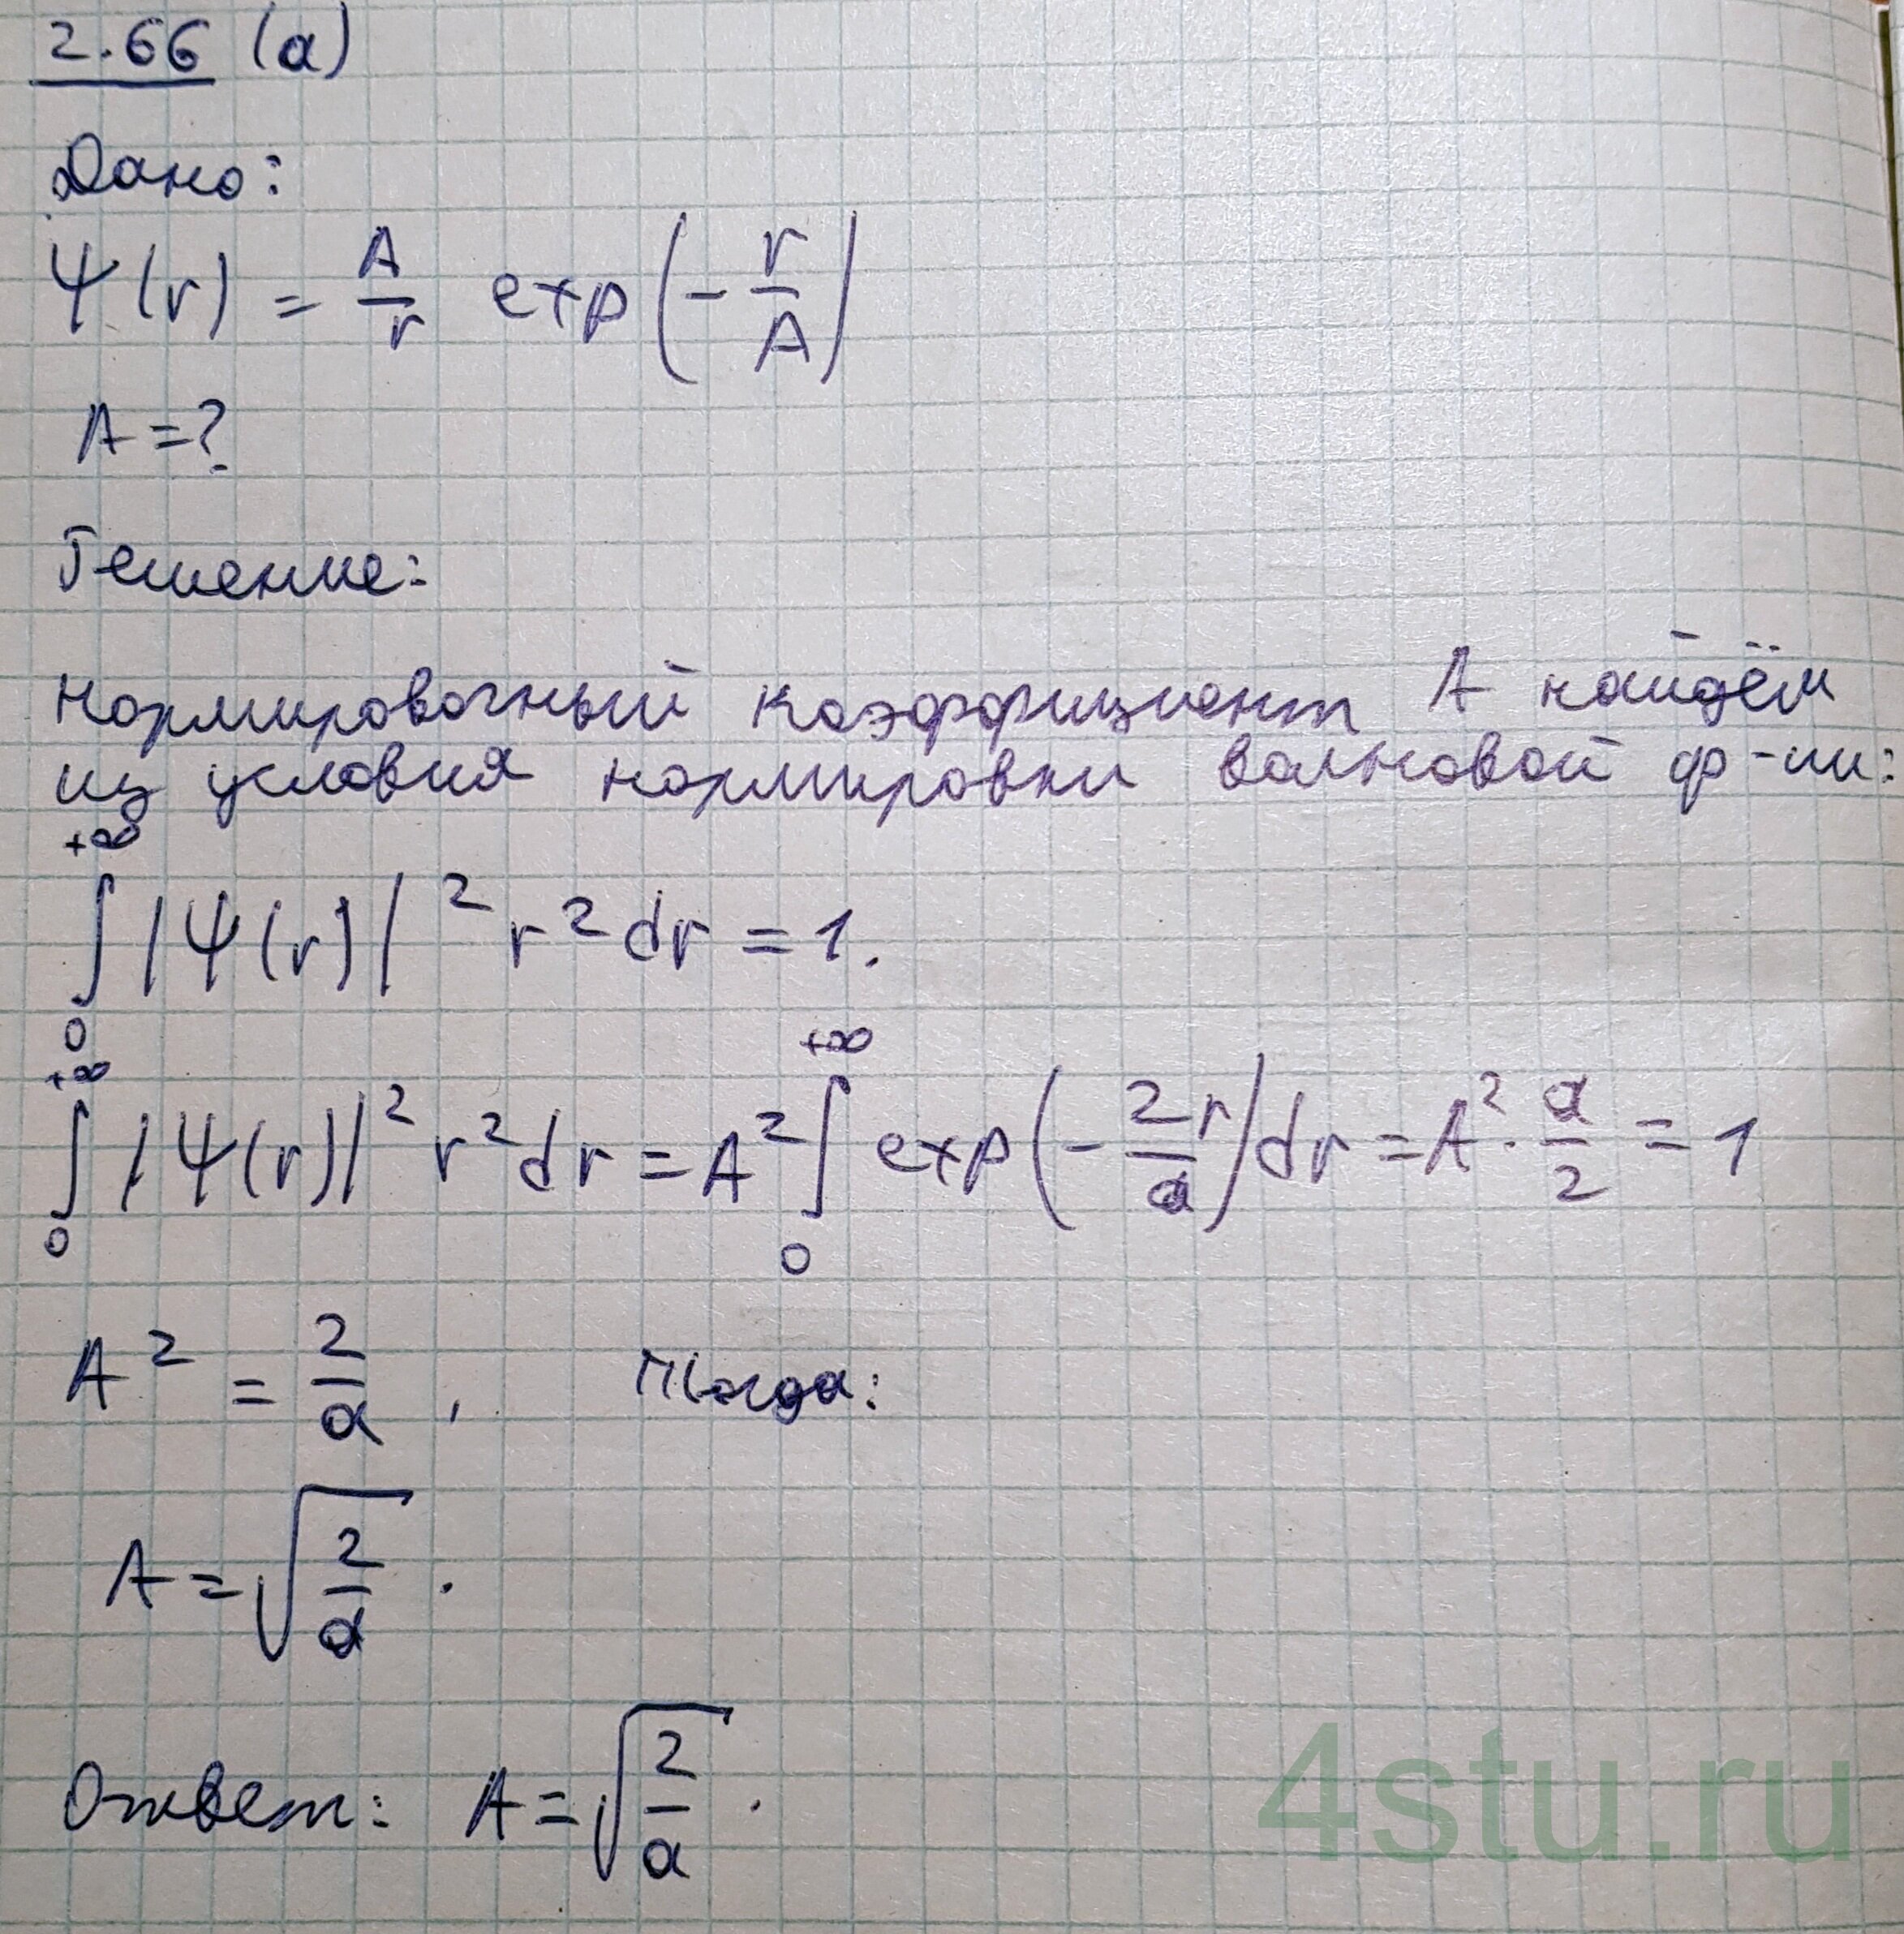 2.66 (а)
Дано:
Ψ(r) = A/r exp(-r/A)
A = ?
Решение:
Нормировочный коэффициент A найдём
из условия нормировки волновой ф-ии:
∫₀^{+∞} |Ψ(r)|² r² dr = 1.
∫₀^{+∞} |Ψ(r)|² r² dr = A² ∫₀^{+∞} exp(-2r/a) dr = A² · a/2 = 1
A² = 2/a , Тогда:
A = √(2/a) .
Ответ: A = √(2/a) .
4stu.ru